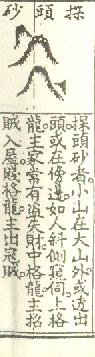 探頭砂
探頭砂者小山在大山外或透出
頭或在傍邊如人斜側窺伺上格
龍主家常有盜失財中格龍主招
賊入屋賤格龍主出寇賊